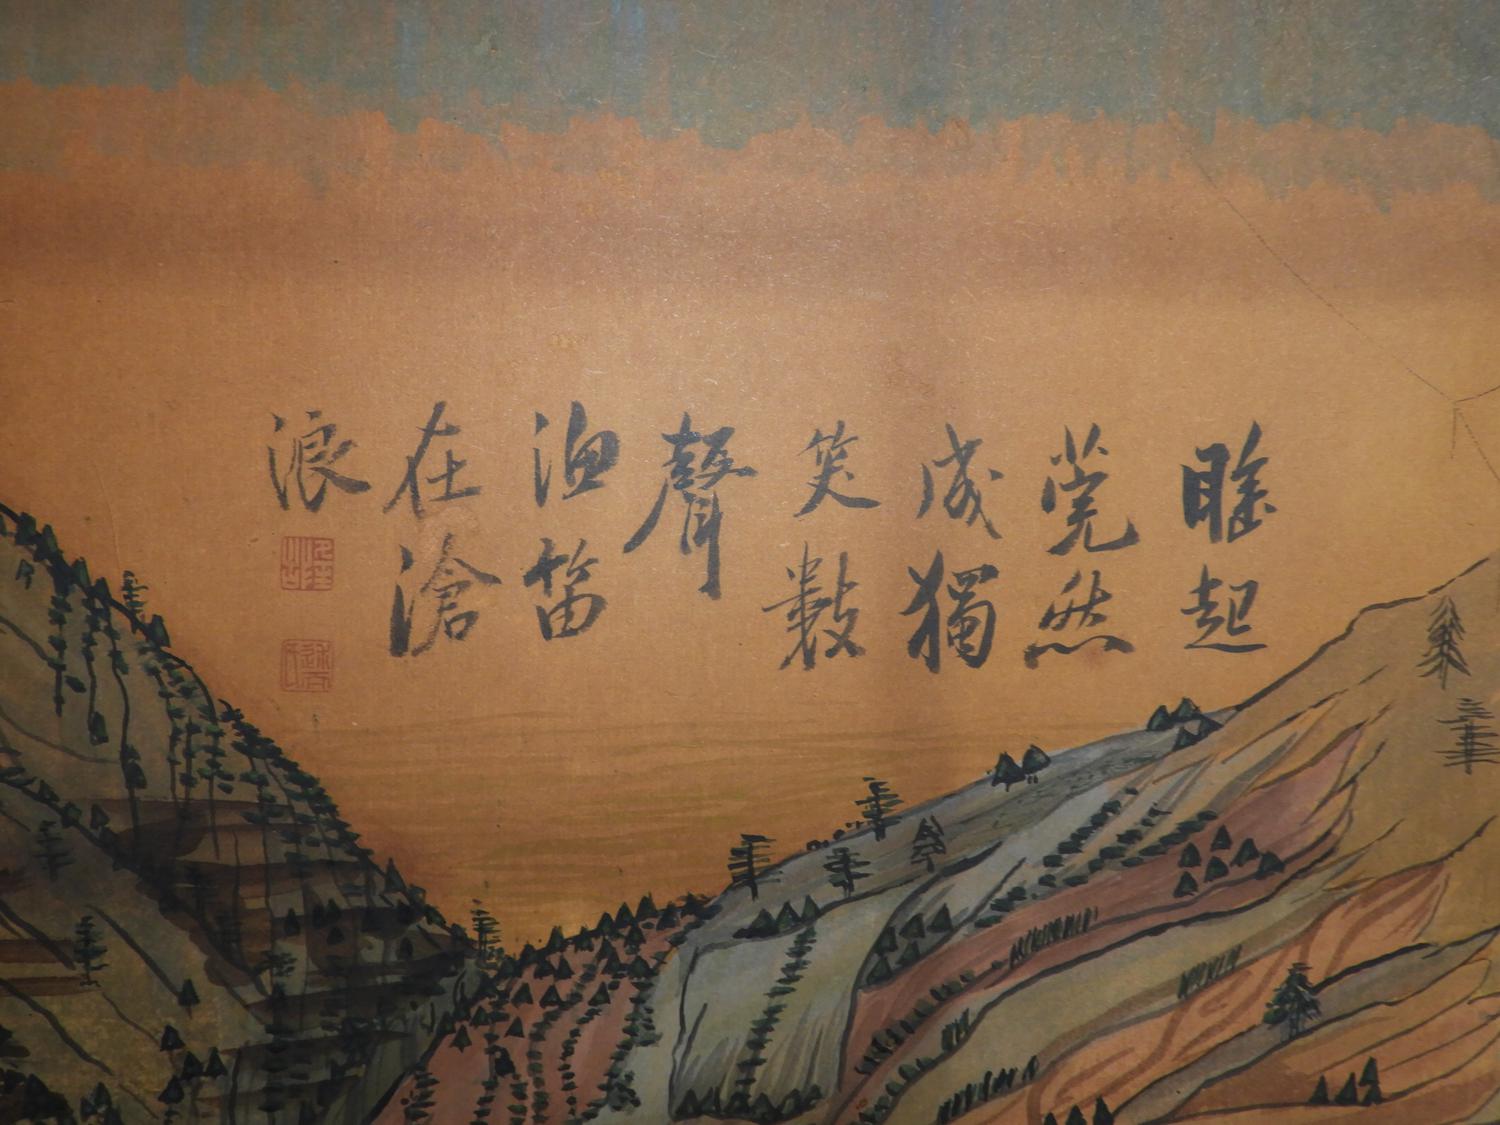 睡起
莞然
成獨
笑數
聲
漁笛
在滄
浪